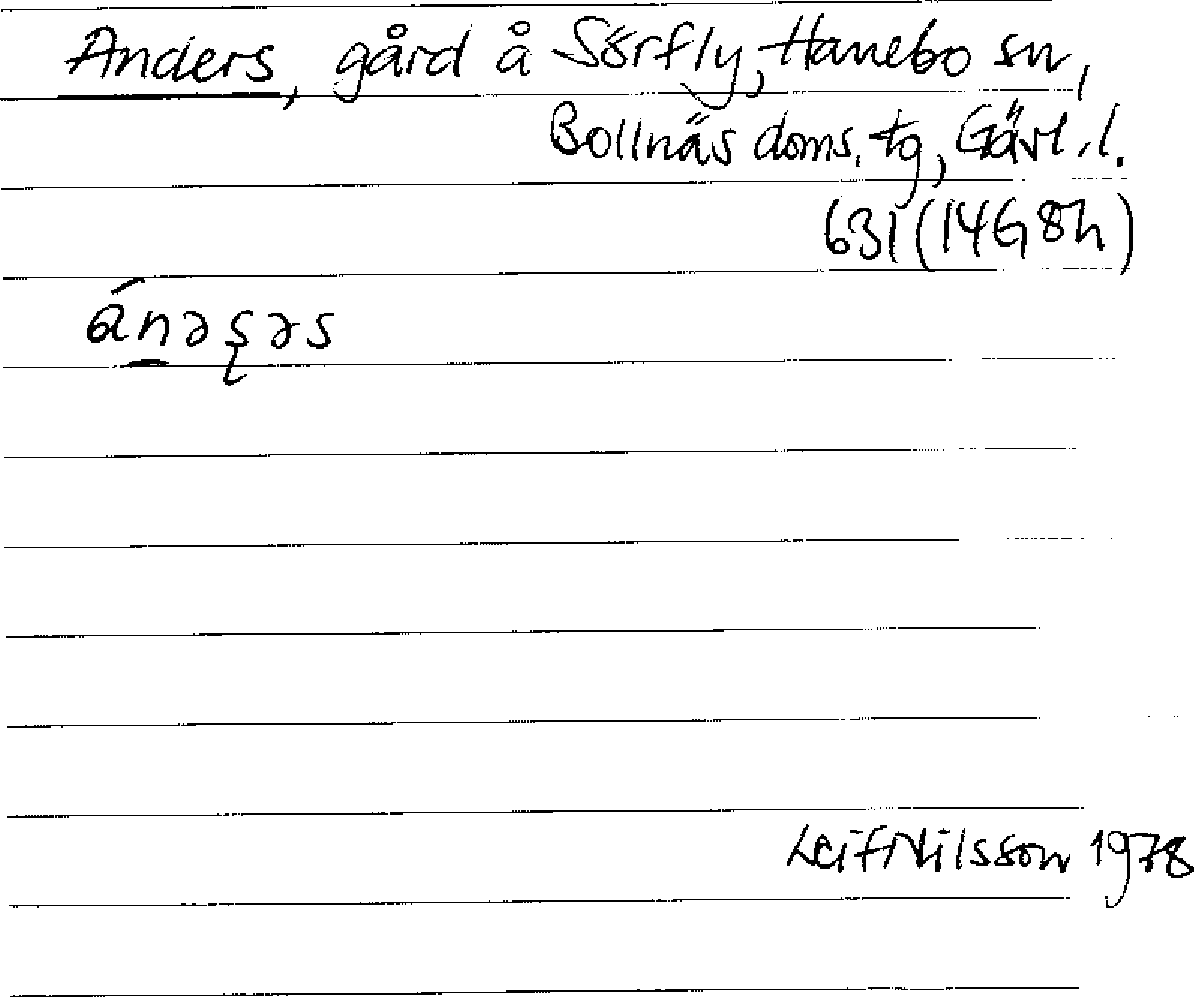 Anders, gård å Sörfly, Hanebo sn,
Bollnäs doms. tg, Gävl. l.
631 (14G 8h)
ánəşəs
Leif Nilsson 1978